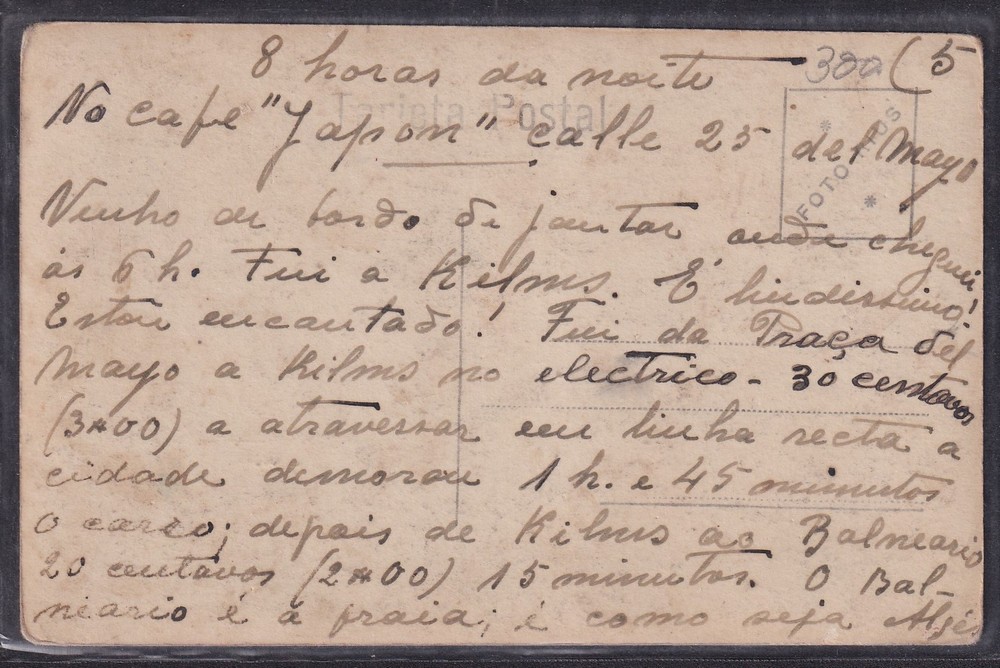 380 (5
8 horas da noite
Tarjeta Postal
No cafe "Japon" calle 25 del Mayo
FOTO
Venho de bordo de jantar onde cheguei
ás 6 h. Fui a Kilms. É lindissimo!
Estou encantado! Fui da Praça del
Mayo a Kilms no electrico - 30 centavos
(3#00) a atravessar em linha recta a
cidade demorou 1 h. e 45 minutos
o carro; depois de Kilms ao Balneario
20 centavos (2#00) 15 minutos. O Bal-
neario é a praia; é como seja Algé